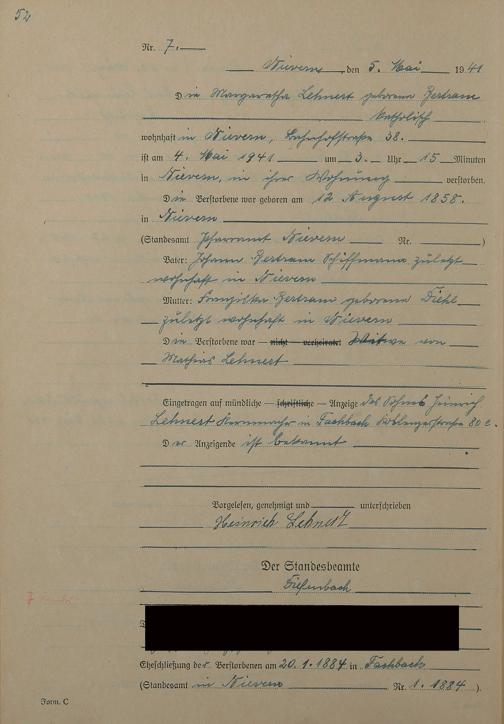 52
Nr. 7.
Nievern, den 5. Mai 1941
Die Margaretha Lehnert geborene Bertram
katholisch
wohnhaft in Nievern, Bahnhofstraße 38.
ist am 4. Mai 1941 um 3. Uhr 15 Minuten
in Nievern, in ihrer Wohnung verstorben.
Die Verstorbene war geboren am 12 August 1858.
in Nievern
(Standesamt Pfarramt Nievern Nr. )
Vater: Johann Bertram Schiffmann zuletzt
wohnhaft in Nievern
Mutter: Bertram geborene Diehl
zuletzt wohnhaft in Nievern
Die Verstorbene war — nicht verheiratet Witwe von
Mathias Lehnert
Eingetragen auf mündliche — schriftliche — Anzeige des Sohnes Heinrich
Lehnert in Fachbach Koblenzerstraße 80
Der Anzeigende ist bekannt
Vorgelesen, genehmigt und unterschrieben
Heinrich Lehnert
Der Standesbeamte
Diefenbach
Eheschließung der Verstorbenen am 20.1.1884 in Fachbach
(Standesamt in Nievern Nr. 1.1884 ).
Form. C